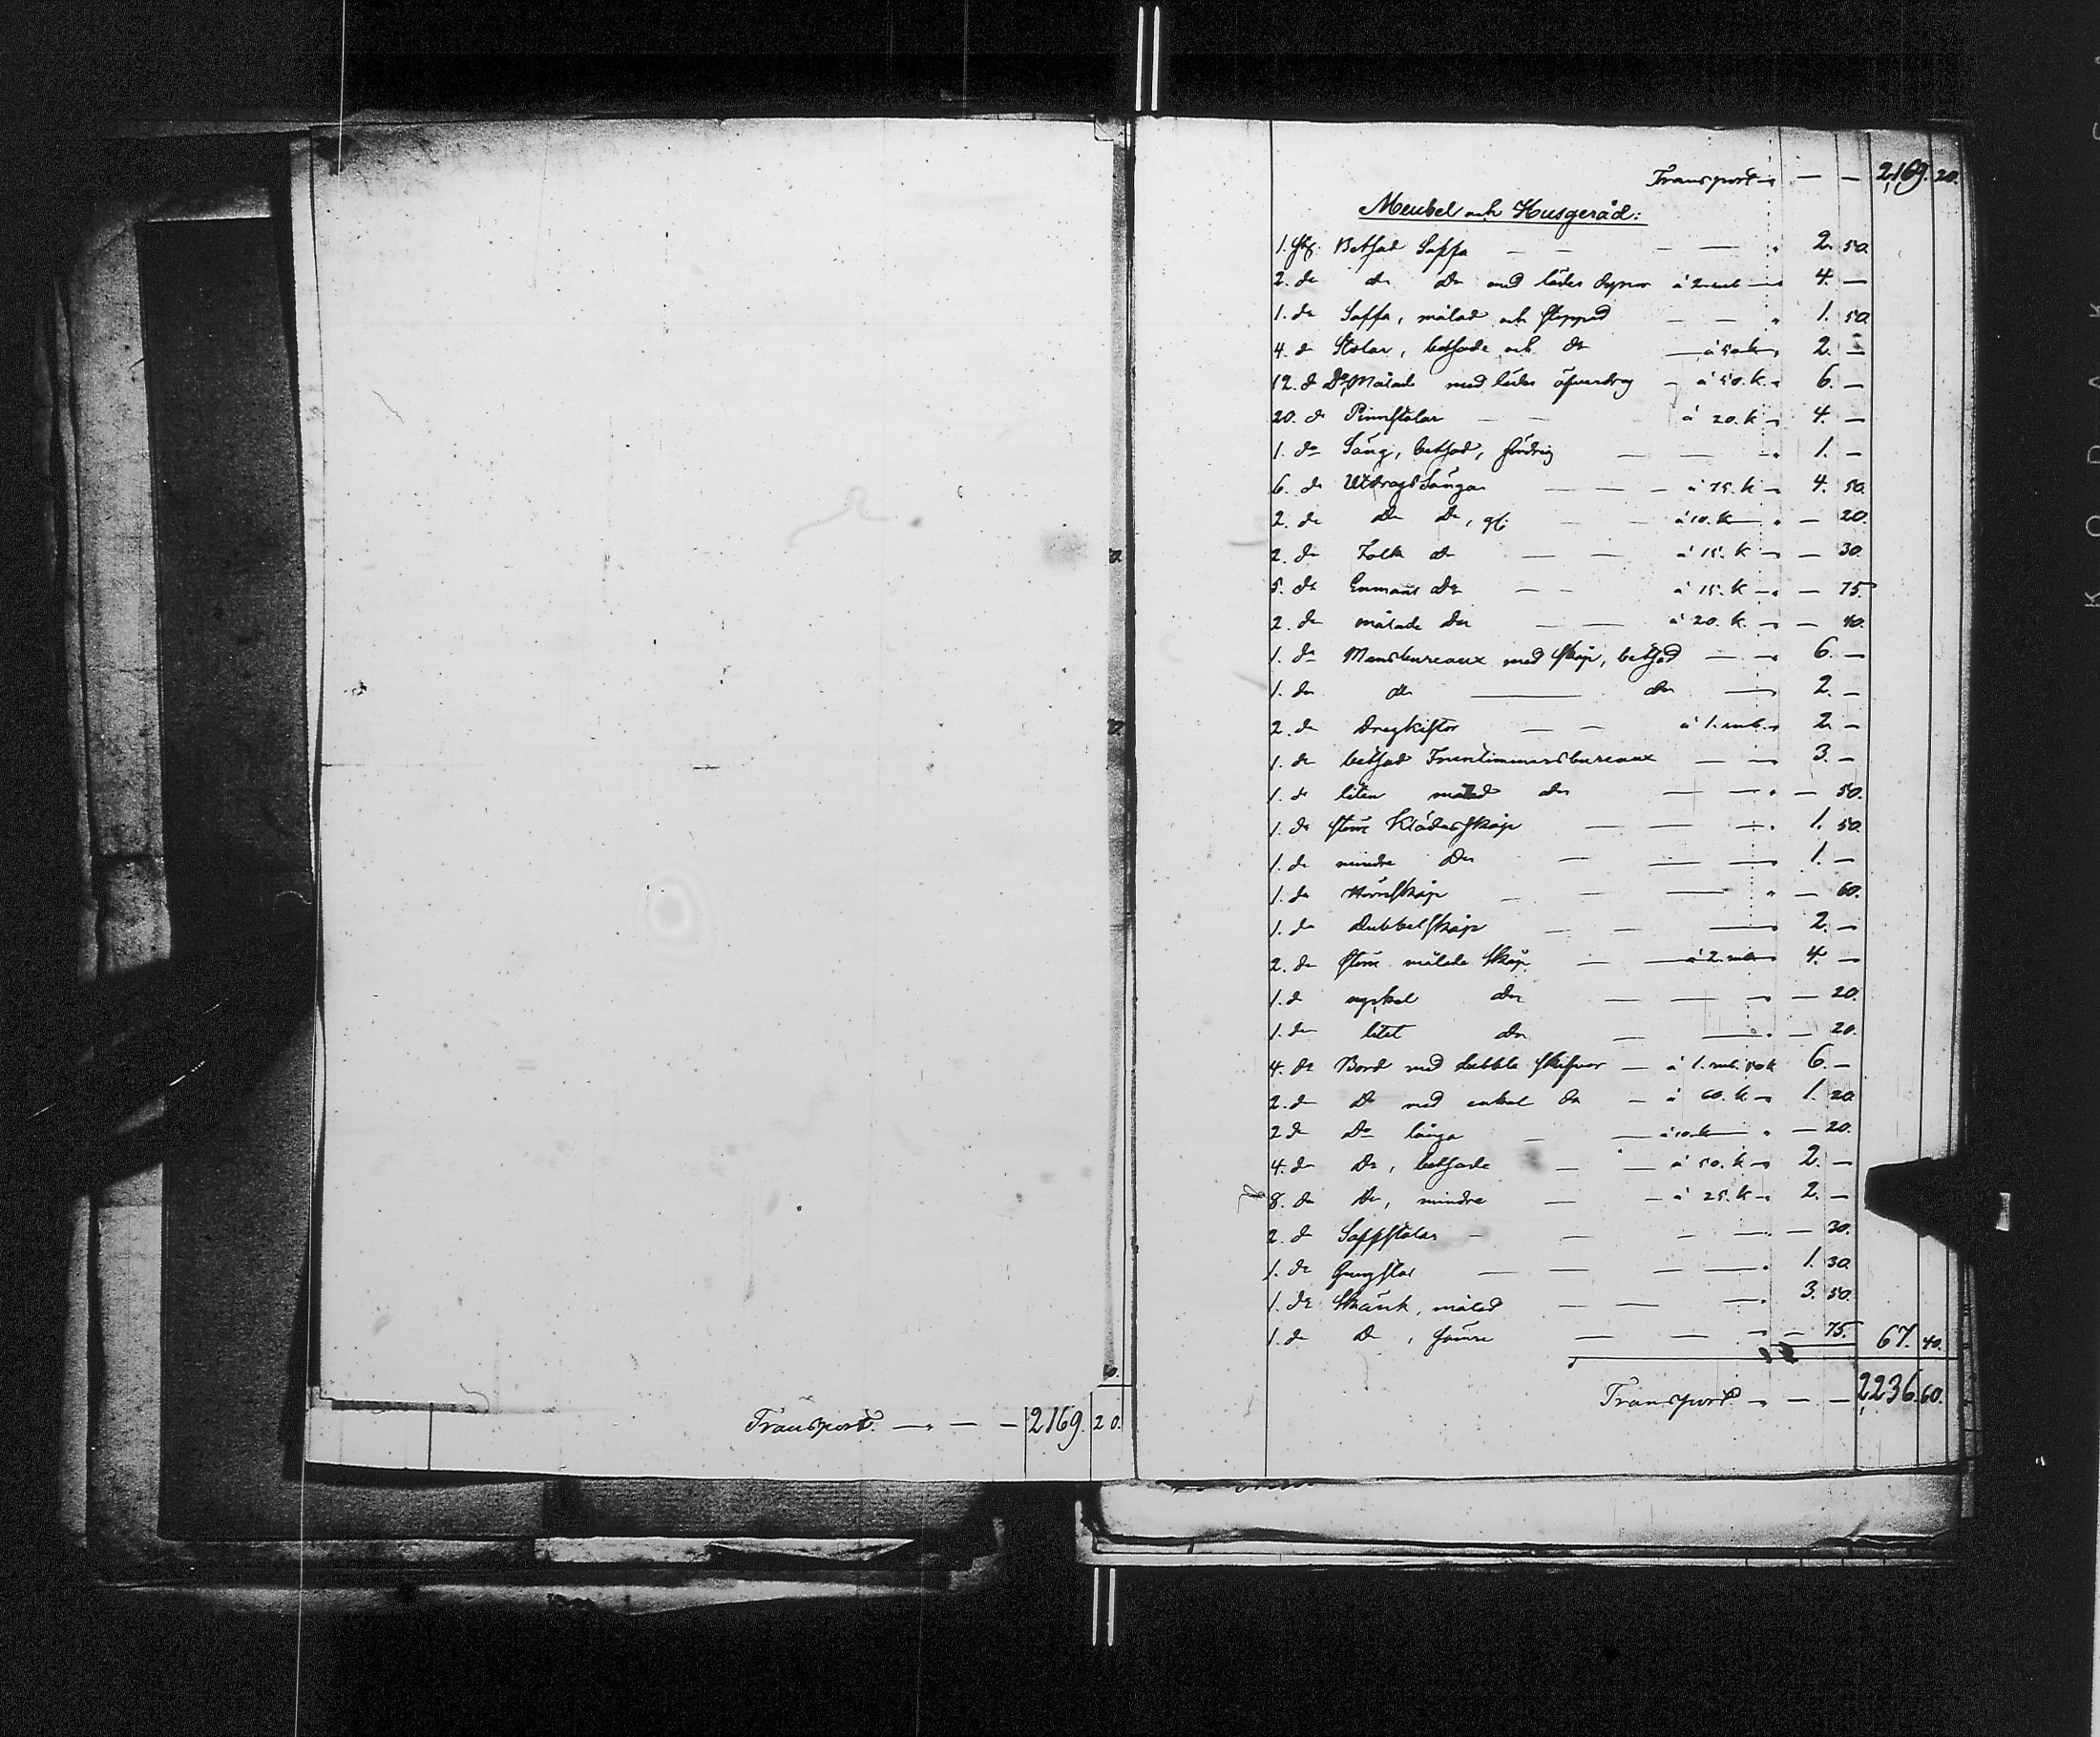 Transport — — — 2169. 20.
Transport — — 2,169. 20.
Meubel och Husgeråd:
1. st. Betsad Soffa — — — — 2. 50.
2. do do Do med läder dynor à 2 rub — 4. —
1. do Soffa, målad och stoppad — — 1. 50.
4. d Stolar, betsade och do — à 50 k 2. —
12. d Do, Målade med läder öfverdrag — à 50. k. 6. —
20. d Pinnstolar — — à 20. k 4. —
1. do Säng, betsad, — — — 1. —
6. do Utdragssängar — — — à 75. k — 4. 50.
2. do Do Do, — — à 10. k — — 20.
2. do Folk do — — à 15. k — — 30.
5. do Enmans Do — — à 15. k — — 75.
2. do målade Do — — à 20. k. — — 40.
1. do Mansbureaux med skåp, betsad — — 6. —
1. do do — do — 2. —
2. do Dragkistor — — à 1. rub. 2. —
1. do betsad Fruntimmersbureaux — — 3. —
1. d liten målad do — — — 50.
1. do större Klädesskåp — — — 1. 50.
1. do mindre Do — — — 1. —
1. do Hörnskåp — — — — 60.
1. do Dubbelskåp — — — 2. —
2. do större målade Skåp — à 2. rub 4. —
1. d do — — — — 20.
1. do litet do — — — 20.
4. do Bord med dubbla skifvor — à 1. rub. 50 k 6. —
2. do Do med enkel do — à 60. k. — 1. 20.
2 do Do långa — — à 10. k — — 20.
4. do Do, betsade — — à 50. k — 2. —
8. do Do, mindre — — à 25. k — 2. —
2. do Soffstolar — — — — — 30.
1. do Gungstol — — — — 1. 30.
1. do Skänk, målad — — — 3. 50.
1. do D , sämre — — — — 75. 67. 40.
Transport — — — 2,236. 60.